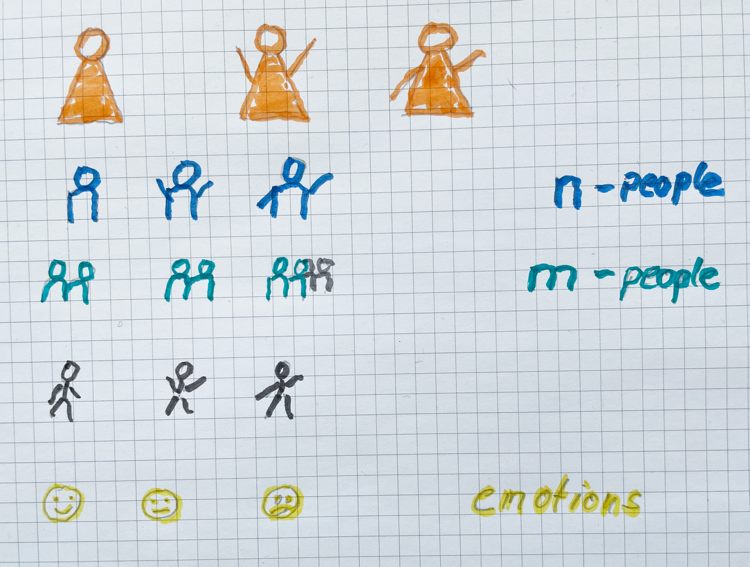 n - people
m - people
emotions